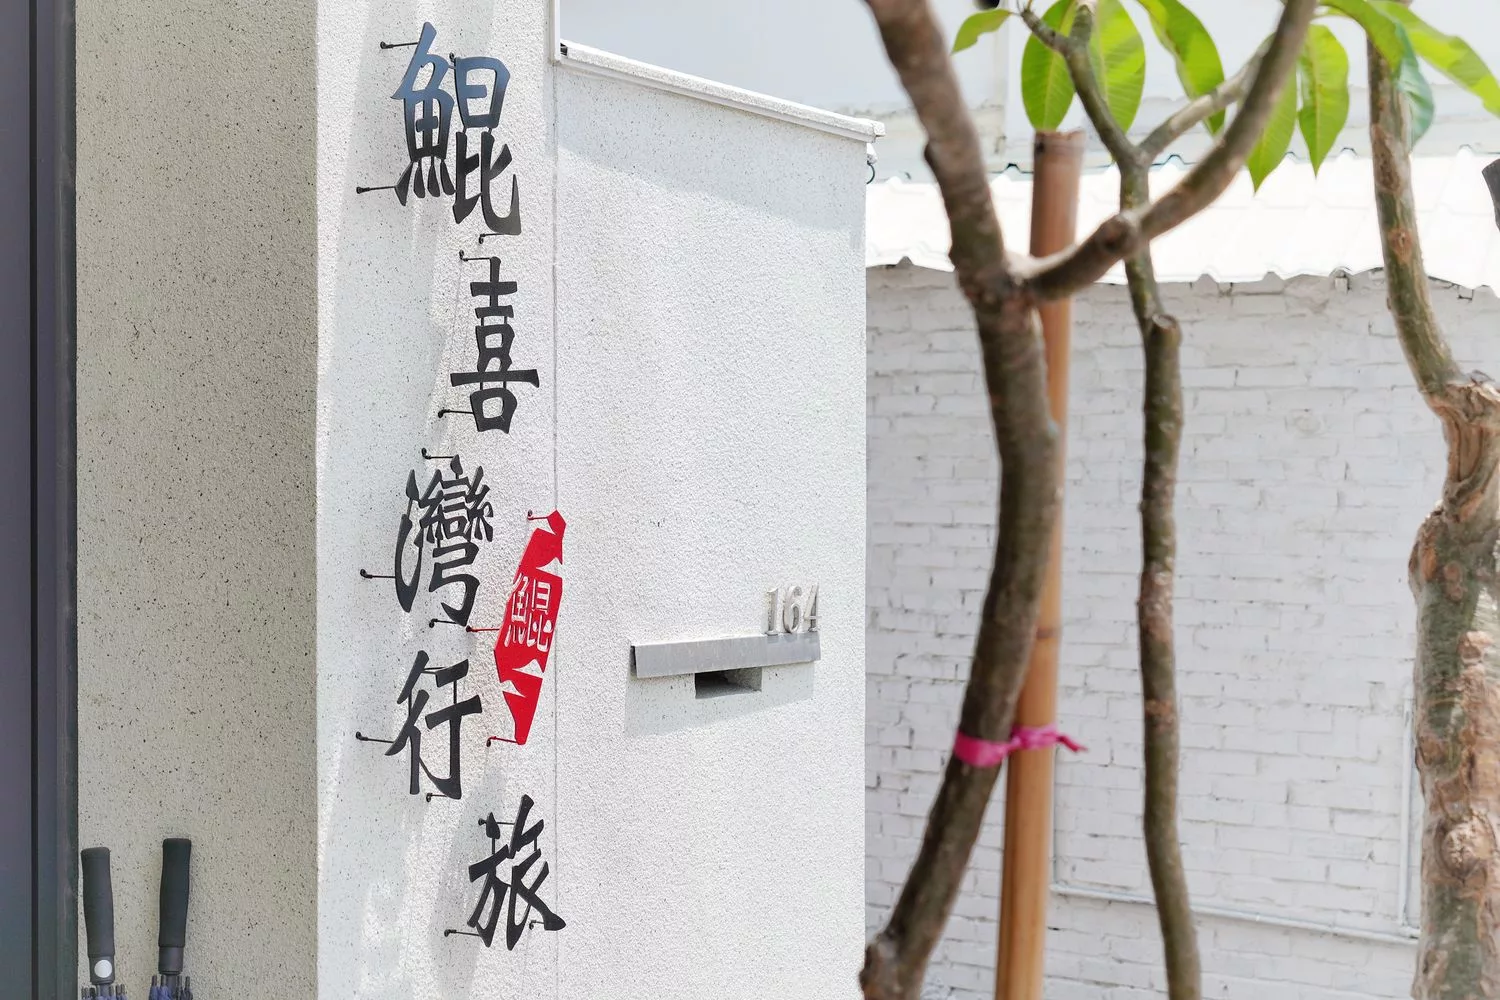 鯤喜灣行旅
鯤
164